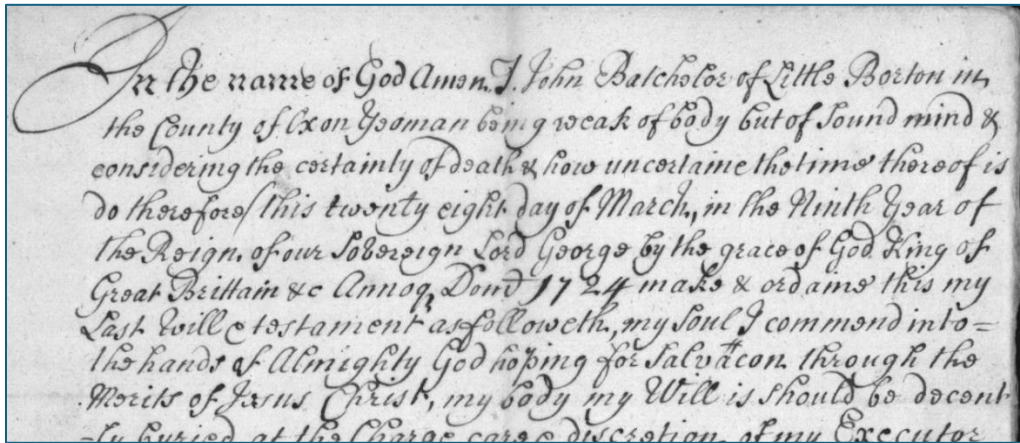 In the name of God Amen. I John Batchelor of Little Borton in
the County of Oxon Yeoman being weak of body but of sound mind &
considering the certainty of death & how uncertaine the time thereof is
do therefore this twenty eight day of March, in the Ninth Year of
the Reign of our Sovereign Lord George by the grace of God King of
Great Brittain &c Annoq Domi 1724 make & ordaine this my
Last Will & testament as followeth, my soul I commend into=
the hands of Almighty God hoping for Salvacon through the
Merits of Jesus Christ, my body my Will is should be decent
-ly buried at the Charge care & discretion of my Executor